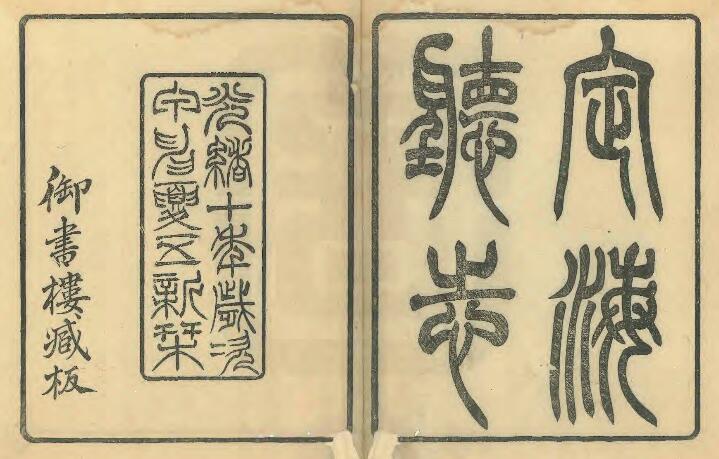 定海
聽志
光緒十年歲次
甲申夏五新栞
御書樓臧板